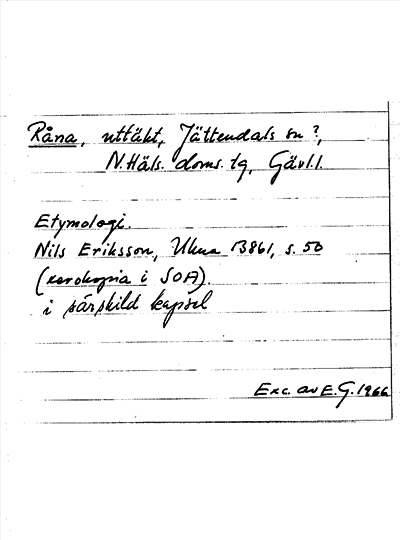 Råna, uttäkt, Jättendals sn?,
N. Häls. doms. lg, Gävl. l.
Etymologi.
Nils Eriksson, Ukna B861, s. 50
(xerokopia i SOA).
i särskild kapsel
Exc. av E. G. 1966